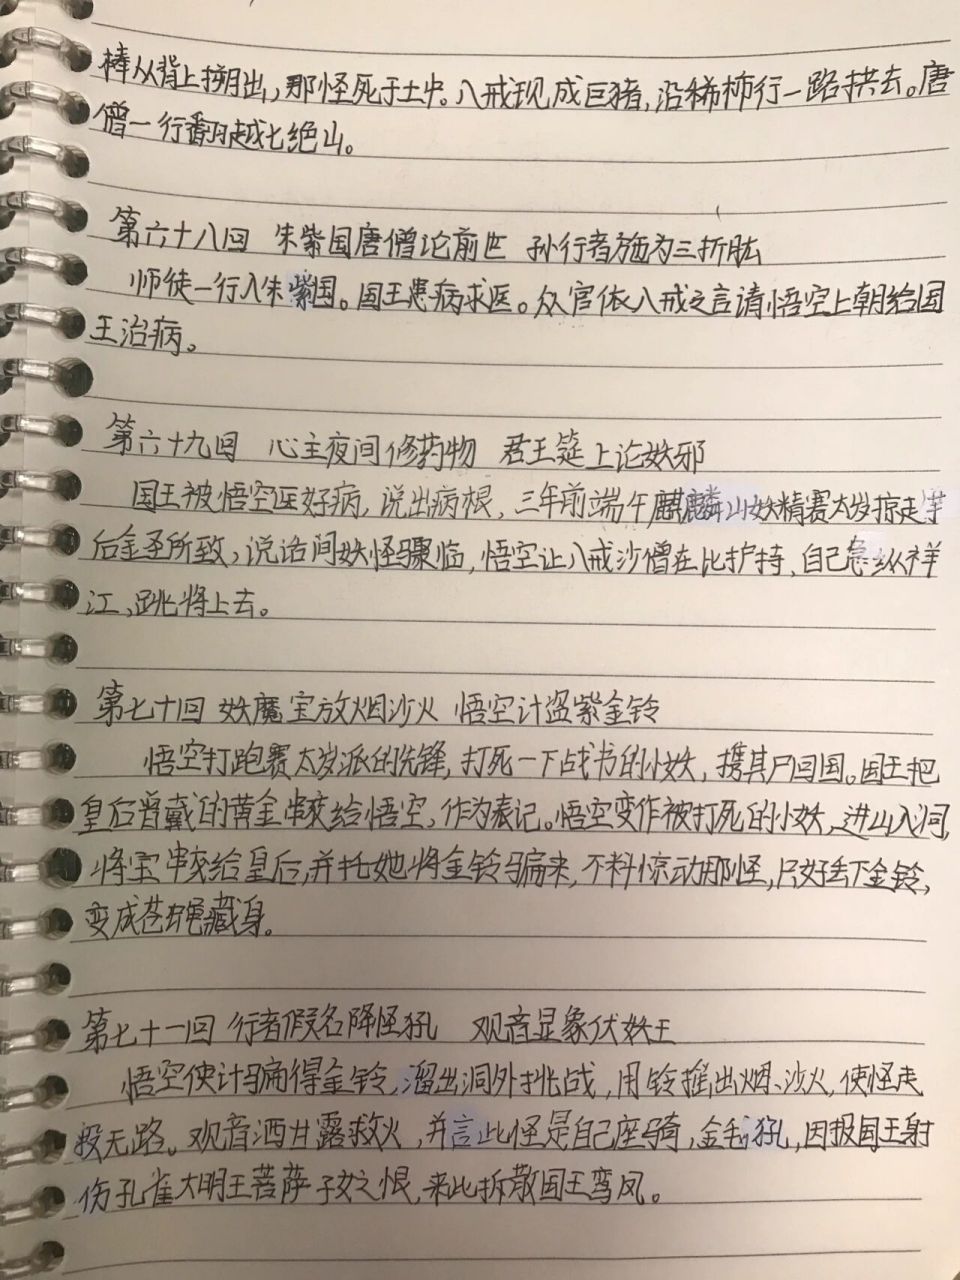 棒从背上搠出，那怪死于土中。八戒现成巨猪，沿稀柿行一路拱去。唐
僧一行翻越七绝山。
第六十八回 朱紫国唐僧论前世 孙行者施为三折肱
师徒一行入朱紫国。国王患病求医。众官依八戒之言请悟空上朝给国
王治病。
第六十九回 心主夜间修药物 君王筵上论妖邪
国王被悟空医好病，说出病根，三年前端午麒麟山妖精赛太岁掠走
后金圣所致，说话间妖怪骤临，悟空让八戒沙僧在此护持，自己急纵祥
江，跳将上去。
第七十回 妖魔宝放烟沙火 悟空计盗紫金铃
悟空打跑赛太岁派的先锋，打死一下战书的小妖，携其尸回国。国王把
皇后曾戴的黄金串交给悟空，作为表记。悟空变作被打死的小妖，进山入洞，
将宝串交给皇后，并托她将金铃骗来，不料惊动那怪，只好丢下金铃，
变成苍蝇藏身。
第七十一回 行者假名降怪犼 观音显象伏妖王
悟空使计骗得金铃，溜出洞外挑战，用铃摇出烟、沙火，使怪走
投无路。观音洒甘露救火，并言此怪是自己座骑，金毛犼，因报国王射
伤孔雀大明王菩萨子女之恨，来此拆散国王鸾凤。